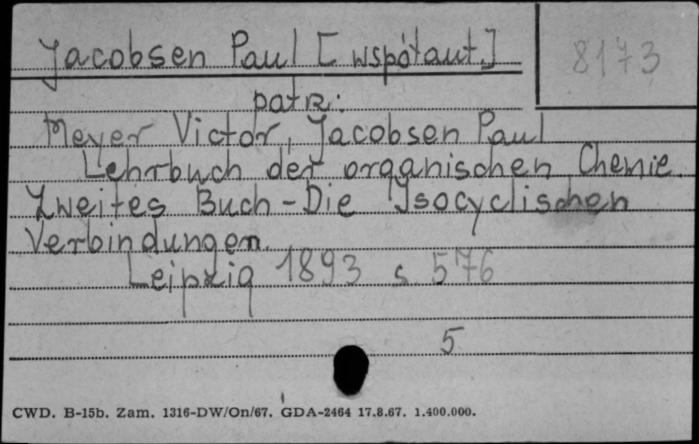 Jacobsen Paul [współaut.]
8173
patrz:
Meyer Victor, Jacobsen Paul
Lehrbuch der organischen Chemie.
Zweites Buch - Die Isocyclischen
Verbindungen.
Leipzig 1893 s. 576
5
CWD. B-15b. Zam. 1316-DW/On/67. GDA-2464 17.8.67. 1.400.000.